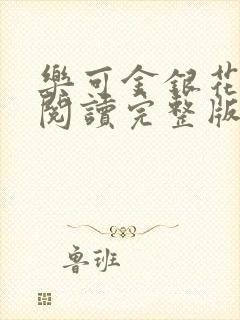 樂可金銀花
閱讀完整版
魯班